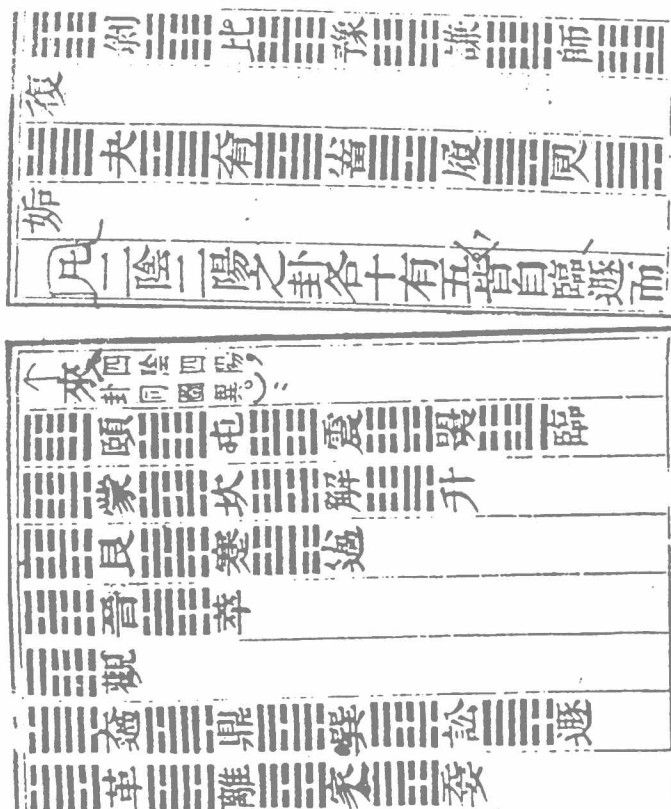 剝 比 豫 謙 師
復
夬 大有 小畜 履 同人
姤
凡二陰二陽之卦各十有五皆自臨遯而
來
四陰四陽
卦同圖異
頤 屯 震 明夷 臨
蒙 坎 解 升
艮 蹇 小過
晉 萃
觀
大過 鼎 巽 訟 遯
革 離 家人 无妄